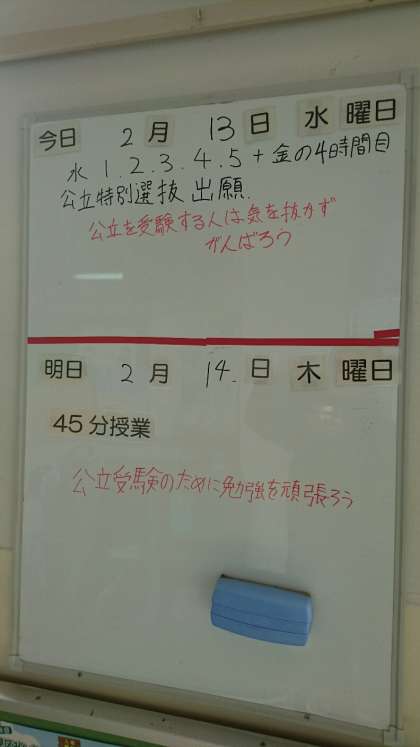 今日 2月 13日 水曜日
水 1.2.3.4.5+金の4時間目
公立特別選抜 出願.
公立を受験する人は気を抜かず
がんばろう
明日 2月 14.日 木曜日
45分授業
公立受験のために勉強を頑張ろう